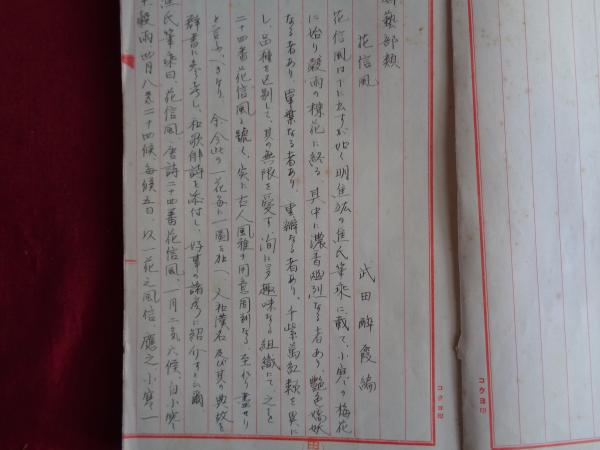 園藝部類
花信風
武田酔霞編
花信風は下に出すが如く明焦竑の焦氏筆乗に載て、小寒の梅花
に始り穀雨の楝花に終る、其中に濃香幽烈なる者あり、艶色嬌妖
なる者あり、単葉なる者あり、重瓣なる者あり、千紫萬紅頼を異に
し、品種を区別して、其の無限を愛す、洵に多趣味なる組織にて、之を
二十四番の花信風と號く、実に古人風雅の用意周到なる、至れり盡せり
と言ふべきなり、余今此の一花毎に一圖を社へ、又和漢名及び其の典故を
群書に参考し、和歌俳詩を添付し、好事の諸彦に紹介すと云爾
焦氏筆乗曰、花信風、唐詩二十四番花信風、一月二気六候、自小寒
至穀雨四月八気二十四候、毎候五日、以一花之風信、應之、小寒一
コクヨ印
コクヨ印